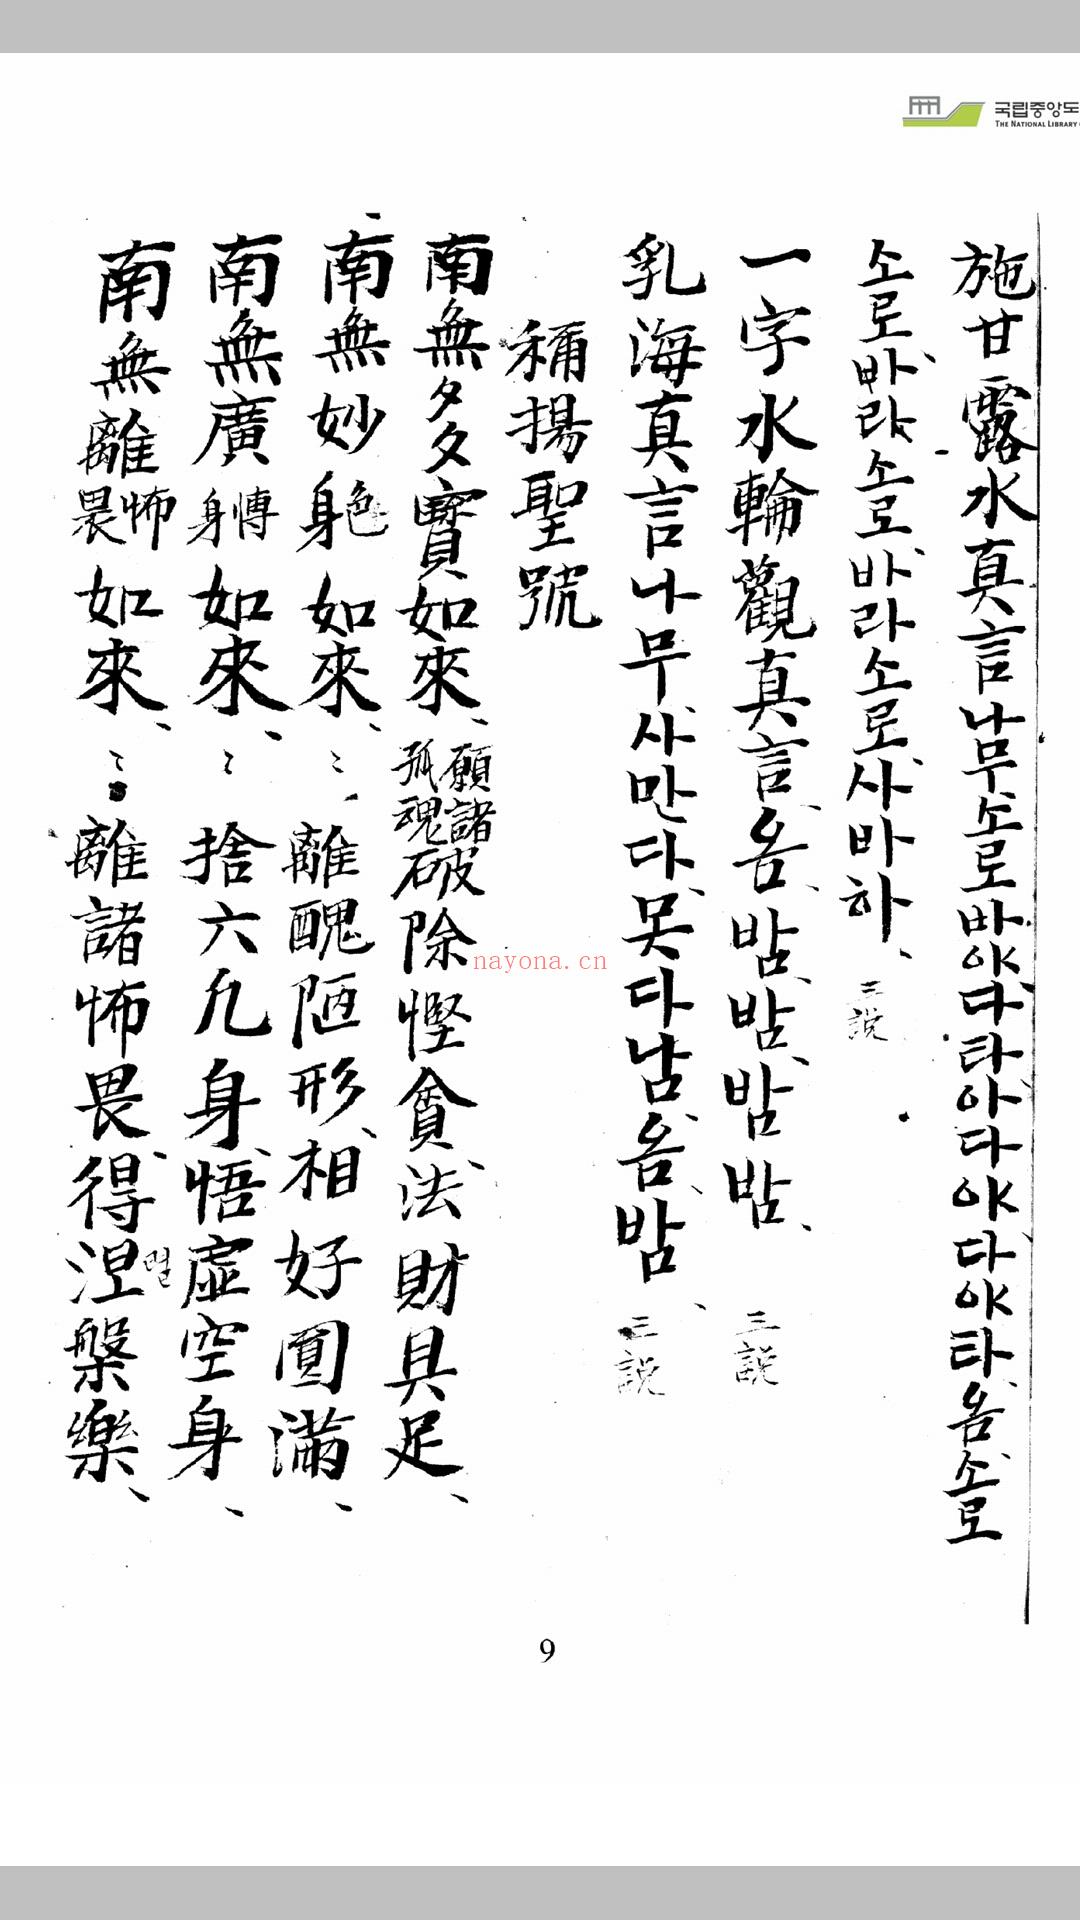 국립중앙도
THE NATIONAL LIBRARY
施甘露水真言나무소로바야다타아다야다야타옴소로
소로바라소로바라소로사바하 三說
一字水輪觀真言옴밤밤밤밤 三說
乳海真言나무사만다못다남옴밤 三說
稱揚聖號
南無多寶如來 願諸孤魂破除慳貪法財具足
南無妙色身如來 〻 離醜陋形相好圓滿
南無廣博身如來 〻 捨六凡身悟虛空身
南無離怖畏如來 〻 離諸怖畏得涅槃樂
녈
nayona.cn
9